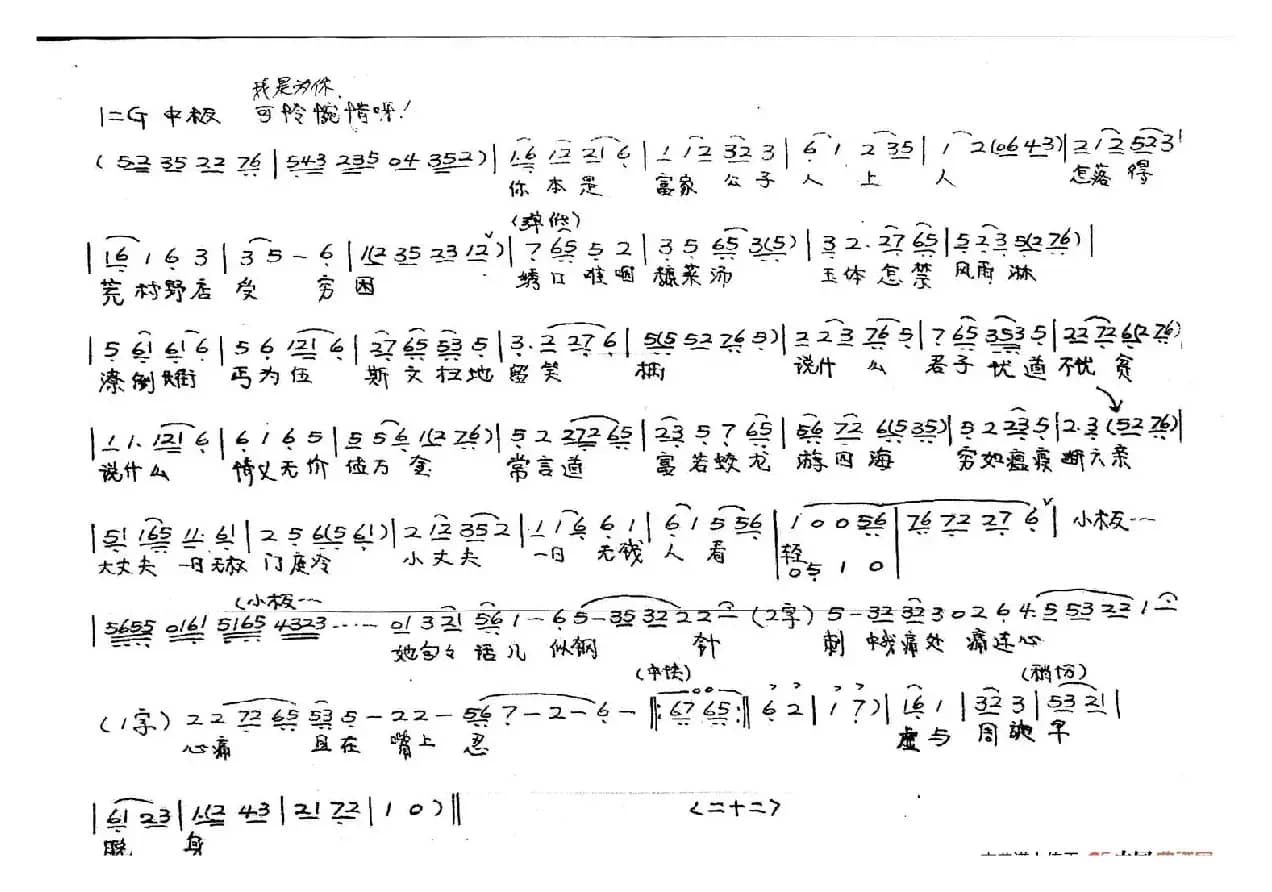 我是为你,
1=G 中板 可怜惋惜呀!
(52 35 22 76 | 543 235 04 352) | 1.6 12 21 6 | 1 12 32 3 | 6 1 2 35 | 1 2(06 43) | 2 12 523 |
你 本 是 富家 公 子 人 上 人 怎落 得
| 16 1 6 3 | 3 5 - 6 | 1(2 35 23 12) | 7 65 5 2 | 3 5 65 3(5) | 3 2. 27 65 | 5 23 5(2 76) |
荒 村野店 受 穷 困 绣口难咽 菜汤 玉体怎禁 风雨淋
| 5 61 61 6 | 5 6 121 6 | 27 65 53 5 | 3. 2 27 6 | 5(5 52 76 5) | 2 23 76 5 | 7 65 353 5 | 22 72 6(2 76)
潦倒 街 丐为伍 斯文扫地 留笑 柄 说什 么 君子忧道不忧贫
| 1 1. 121 6 | 6 1 6 5 | 5 56 1(2 76) | 5 2 272 65 | 23 5 7 65 | 56 72 6(5 35) | 5 2 23 5 | 2 3 (52 76) |
说什么 情义无价值万金 常言道 富若蛟龙游四海 穷如瘟疫断六亲
| 51 165 11. 61 | 2 5 6(5 61) | 2 12 35 2 | 1 16 6 1 | 6 1 5 56 | 1 0 0 56 | 76 72 27 6 | 小板…
大丈夫 一日无权 门庭冷 小丈夫 一日 无钱 人 看 轻
05 1 0
(小板…
| 5655 0161 5165 4323 …… 01 3 21 56 1 - 6 5 - 35 32 2 2 - (2字) 5 - 32 32 3 0 2 6 4. 5 53 22 1 -
她句句 话儿 似钢 针 刺 中我痛处 痛连心
(中快) (稍切)
(1字) 22 72 65 53 5 - 22 - 56 7 - 2 - 6 - ‖: 67 65 :‖ 6 2 | 1 7) | 16 1 | 32 3 | 53 21 |
心痛 且在 嘴上 忍 虚与 周旋 早
| 61 23 | 1.(2 43 | 21 72 | 1 0) ‖ <二十二>
脱 身